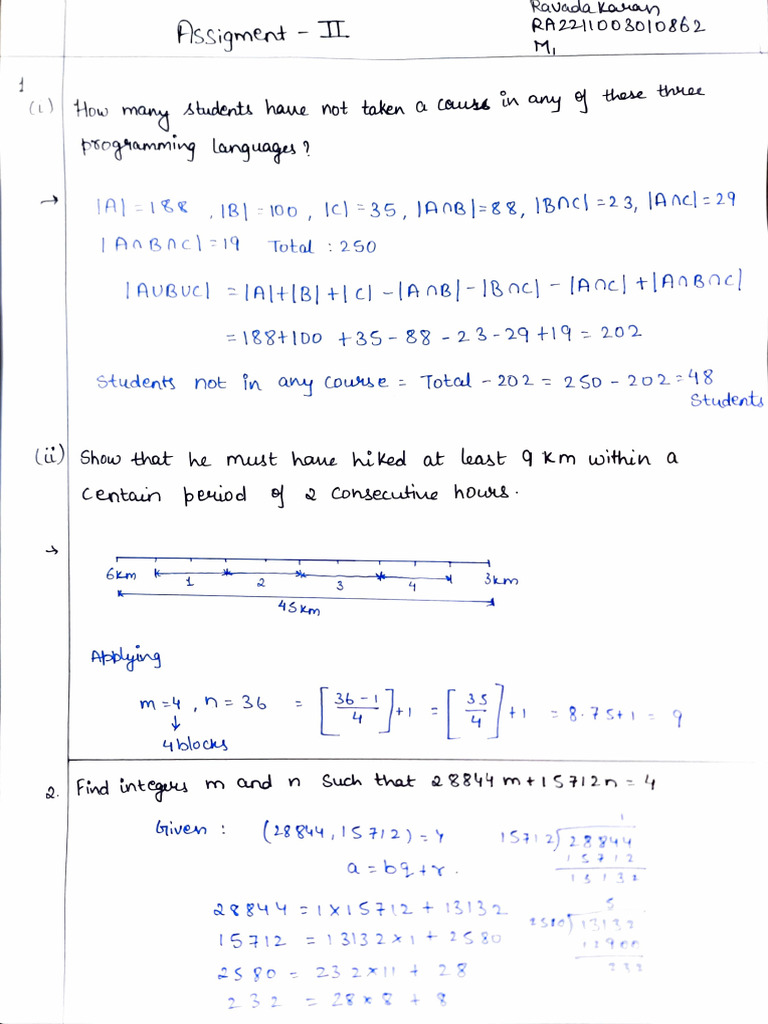 Ravada Karan
Assigment - II
RA2211003010862
M1
1
(i) How many students have not taken a course in any of these three
programming languages?
→ |A| = 188 , |B| = 100 , |C| = 35, |A∩B| = 88, |B∩C| = 23, |A∩C| = 29
|A∩B∩C| = 19 Total : 250
|A∪B∪C| = |A|+|B|+|C| - |A∩B| - |B∩C| - |A∩C| + |A∩B∩C|
= 188+100 +35 - 88 - 23 - 29 + 19 = 202
Students not in any course = Total - 202 = 250 - 202 = 48
Students
(ii) Show that he must have hiked at least 9 km within a
centain period of 2 consecutive hours.
→
6km 1 2 3 4 3km
45km
Applying
m=4 , n = 36 = [36-1/4]+1 = [35/4]+1 = 8.75+1 = 9
↓
4 blocks
2. Find integers m and n such that 28844m+15712n=4
Given : (28844,15712) = 4
a = bq+r.
28844 = 1×15712 + 13132
15712 = 13132×1 + 2580
2580 = 232×11 + 28
232 = 28×8 + 8
1
15712)28844
15712
13132
5
2580)13132
12900
232